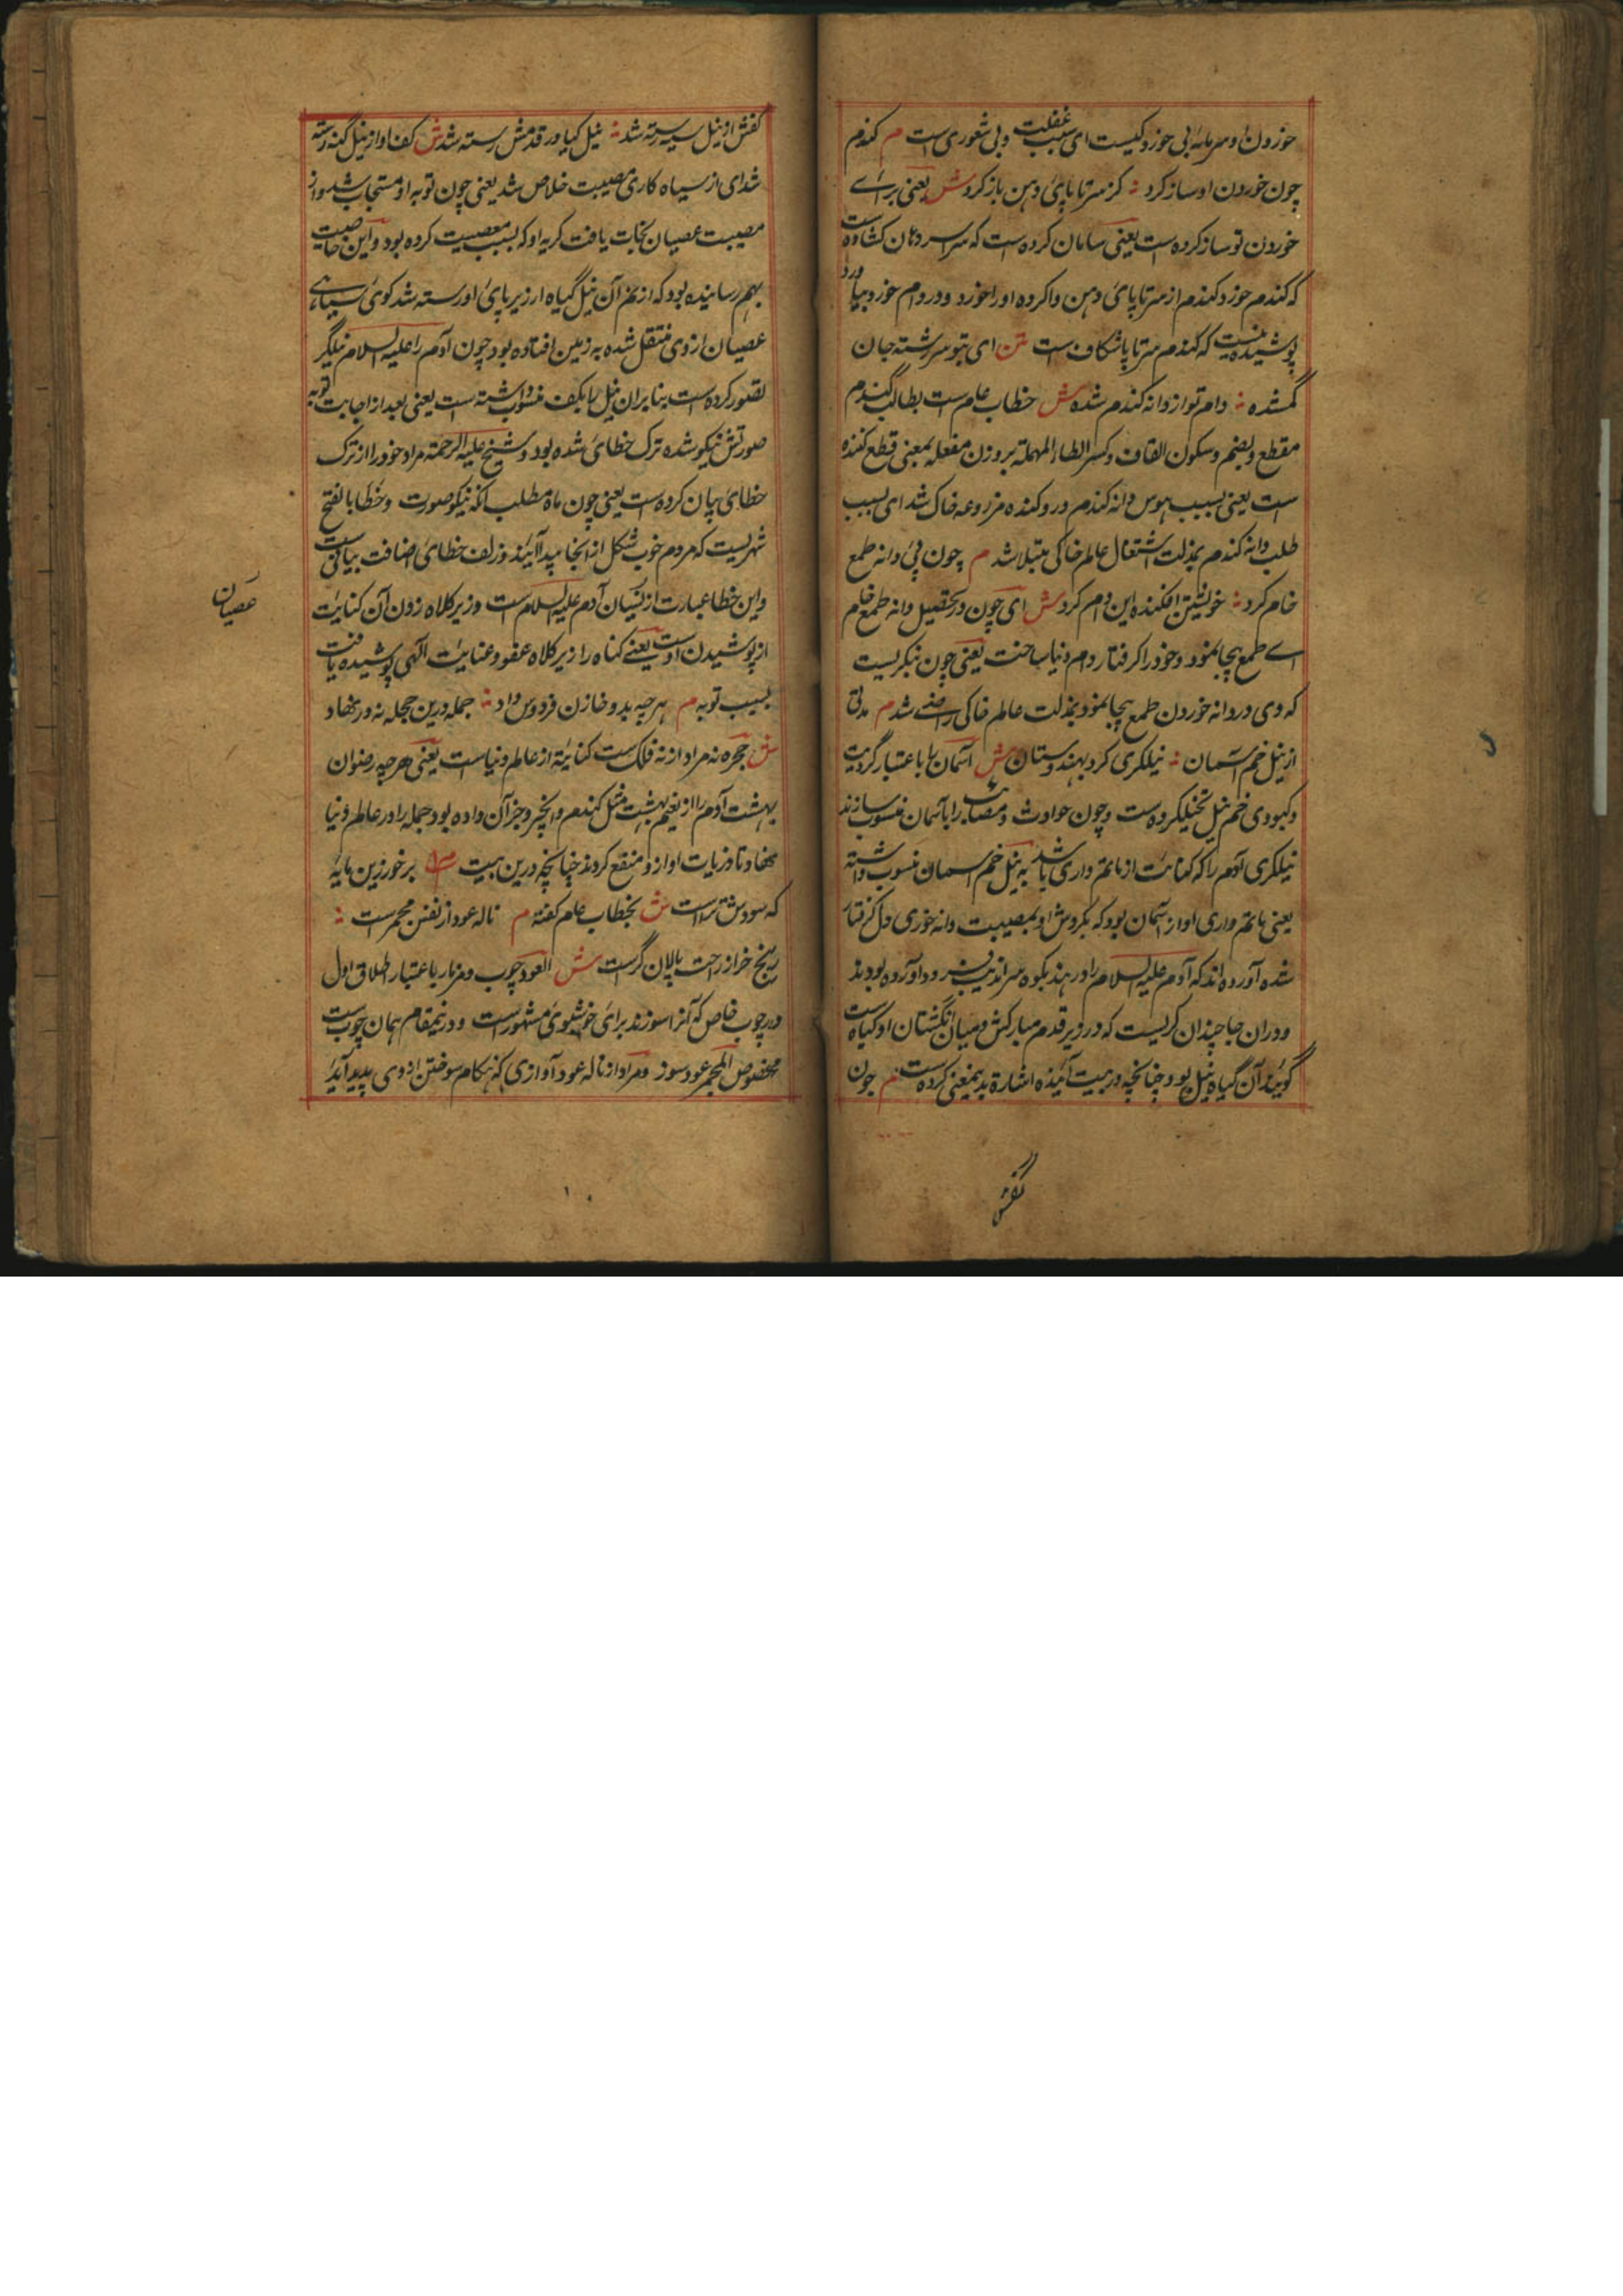 خوردن او سرمایه ابی خورد کیست ای بسبب غفلت و بی شعوری است م کندم
چون خوردن او ساز کرد ؞ کز سر تا پای دهن باز کرد ش یعنی برای
خوردن تو ساز کرده است یعنی سامان کرده است که سراسر دهان کشاده است
که کندم خورد کندم از سر تا پای دهن وا کرده او را خورد و در دام خود بیاورد
پوشیده نیست که کندم سر تا پا شکاف است متن ای بتو سر رشته جان
گمشده ؞ دام تو از دانه کندم شده ش خطاب عام است بطالب گندم
مقطع بضم و سکون القاف و کسر الطاء المهملة بر وزن مفعله بمعنی قطع کننده
است یعنی بسبب هوس دانه کندم درو کننده مزروعه خاک شد ای بسبب
طلب دانه کندم بمذلت اشتغال عالم خاکی مبتلا شد م چون پی دانه طمع
خام کرد ؞ خویشتن افکنده این دام کرد ش ای چون در تحصیل دانه طمع خام
اے طمع بیجا نمود و خود را گرفتار دام دنیا ساخت یعنی چون نگریست
که وی در دانه خوردن طمع بیجا نمود بمذلت عالم خاکی راضے شد م مدتی
از نیل خم آسمان ؞ نیلگری کرد بهندوستان ش آسمان را باعتبار گردیت
و کبودی خم نیل تخیل کرده است و چون حوادث و مصائب را بآسمان منسوب سازند
نیلگری آدم را که کنایت از ماتم داری باشد به نیل خم آسمان منسوب داشته
یعنی ماتم داری او از آسمان بود که بگردش او بمصیبت دانه خوری دل گرفتار
شده آورده اند که آدم علیه السلام را در هند بکوه سراندیب فرود آورده بودند
و دران جا چندان گریست که در زیر قدم مبارکش و میان انگشتان او گیاه است
گویند آن گیاه نیل بود چنانچه در بیت آینده اشارة بدینمعنی کرده است م چون
کفش
کفش از نیل سیه رسته شد ؞ نیل گیا در قدمش رسته شد ش کف او از نیل گنه رسته
شد ای از سیاه کاری مصیبت خلاص شد یعنی چون توبه او مستجاب شد و از
مصیبت عصیان نجات یافت گریه او که بسبب معصیت کرده بود و این خاصیت
بهم رسانیده بود که از نم آن نیل گیاه از زیر پای او رسته شد گوی سیاهی
عصیان از وی منتقل شده به زمین افتاده بود چون آدم را علیه السلام نیلگر
تصور کرده است بنا بران نیل را بکف منسوب داشته است یعنی بعد از اجابت توبه
صورتش نیکو شده ترک خطای شده بود و شیخ علیه الرحمة مراد خود را از ترک
خطای بیان کرده است یعنی چون ماه مطلب آنکه نیکو صورت و خطا بالفتح
شهریست که مردم خوب شکل از انجا پیدا آیند و زلف خطای اضافت بیانی است
و این خطا عبارت از نسیان آدم علیه السلام است و زیر کلاه زدن آن کنایت
از پوشیدن اوست یعنے گناه را زیر کلاه عفو و عنایت الٓهی پوشیده یافت
بسبب توبه م هر چه بدو خازن فردوس داد ؞ جمله درین حجله نه در نهاد
ش حجره نه مراد از نه فلک است کنایة از عالم دنیا است یعنی هر چه رضوان
بهشت آدم را از نعیم بهشت مثل کندم و انجیر و جز آن داده بود جمله را در عالم دنیا
نهاد تا ذریات او ازو منتفع کردند چنانچه درین بیت م برخور زین مایه
که سودش تراست ش بخطاب عام گفته م ناله عود از نفس مجمرست ؞
رنج خر از راحت پالان گرست ش العود چوب و مزمار باعتبار اطلاق اول
در چوب خاص که آنرا سوزند برای خوشبوی مشهورست و درینمقام همان چوب است
مخصوص المجمر عود سوز و مراد از ناله عود آوازی که هنکام سوختن از وی پدید آید
عصیان